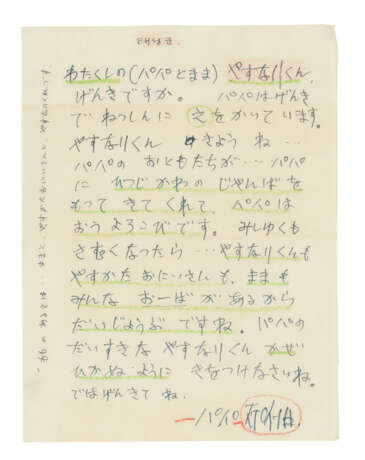 わたくしの(パパとまま)やすなりくん、
げんきですか。 パパはげんき
でねっしんに 絵をかいています。
やすなりくん きようね…
パパの おともたちが… パパ
に ひつじかわの じゃんばを
もって きてくれて、パパは
おうよろこびです。みしゆくも
さむくなったら…やすなりくんも
やすかたおにいさんも、ままも
みんな おーばがあるから
だいじょうぶですね。パパの
だいすきな やすなりくん かぜ
ひかぬように きをつけなさいね。
でばげんきでね。
パパ